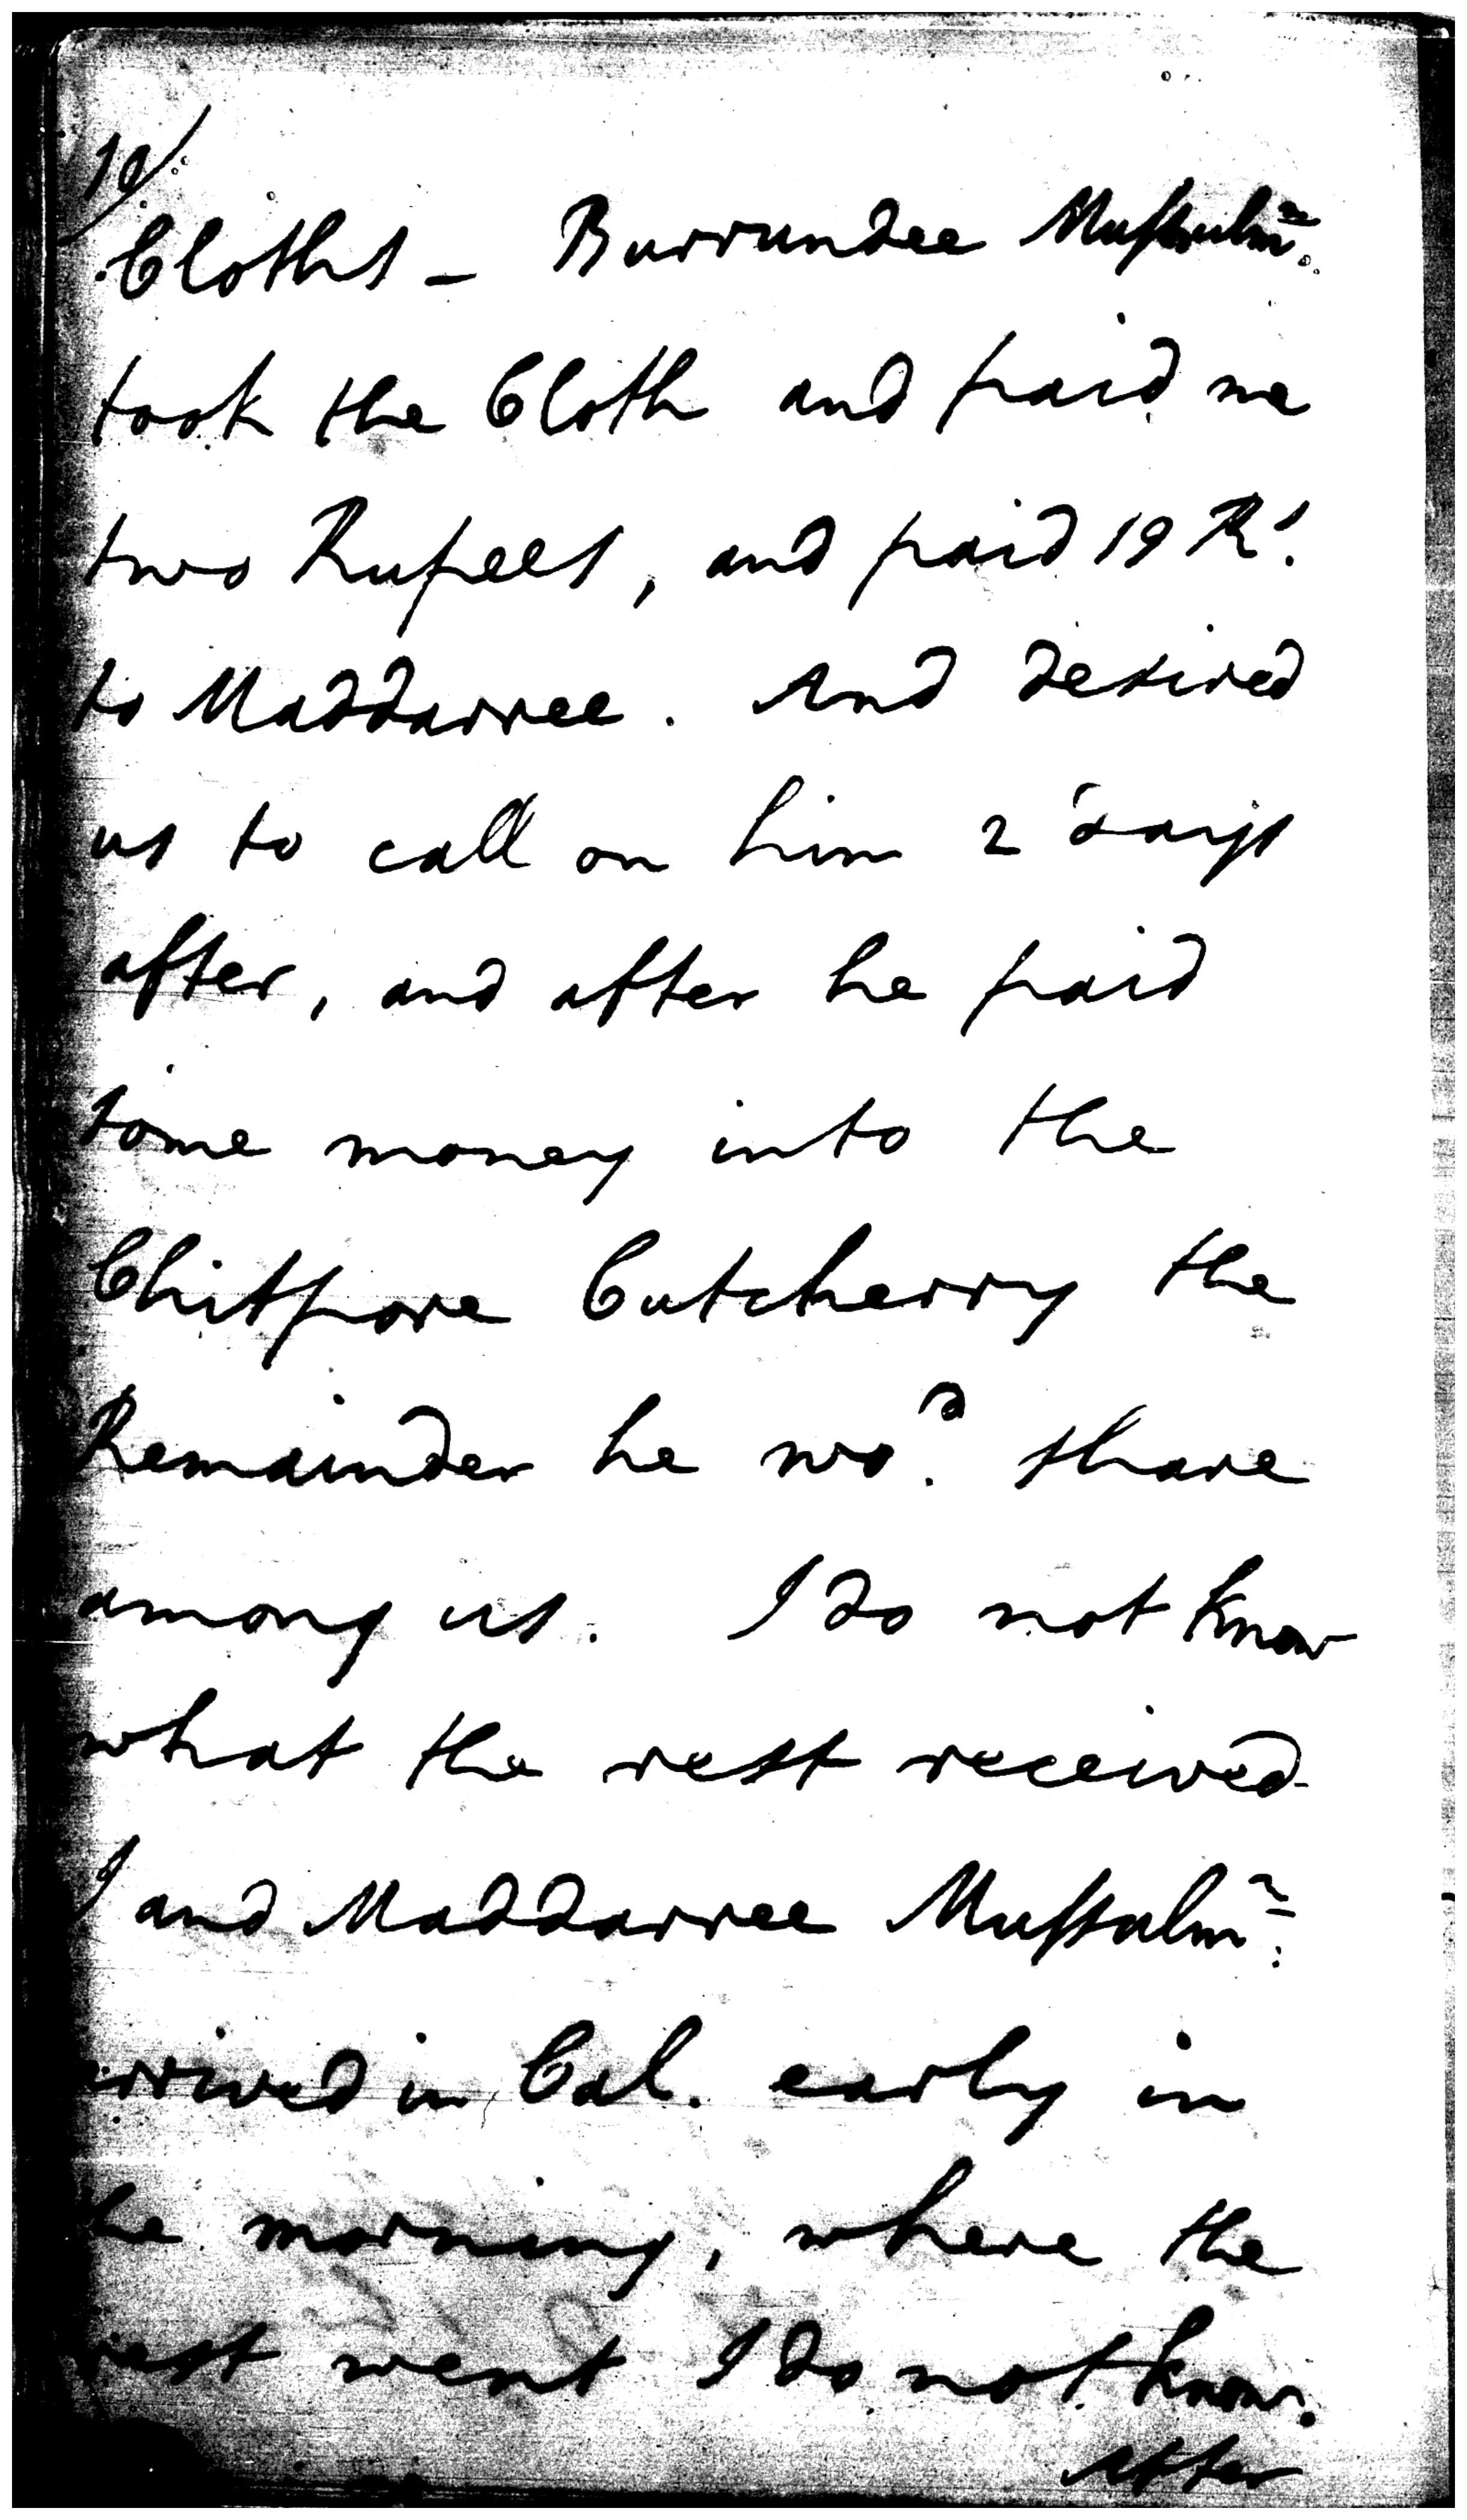 10/
Cloths - Burrundee Mussulmn.
took the Cloth and paid me
two Rupees, and paid 19 Rs.
to Maddarree. And desired
us to call on him 2 days
after, and after he paid
some money into the
Chitpore Cutcherry the
Remainder he wod. share
among us. I do not know
what the rest received
I and Maddarree Mussulmn.
arrived in Cal. early in
the morning, where the
rest went I do not know.
After